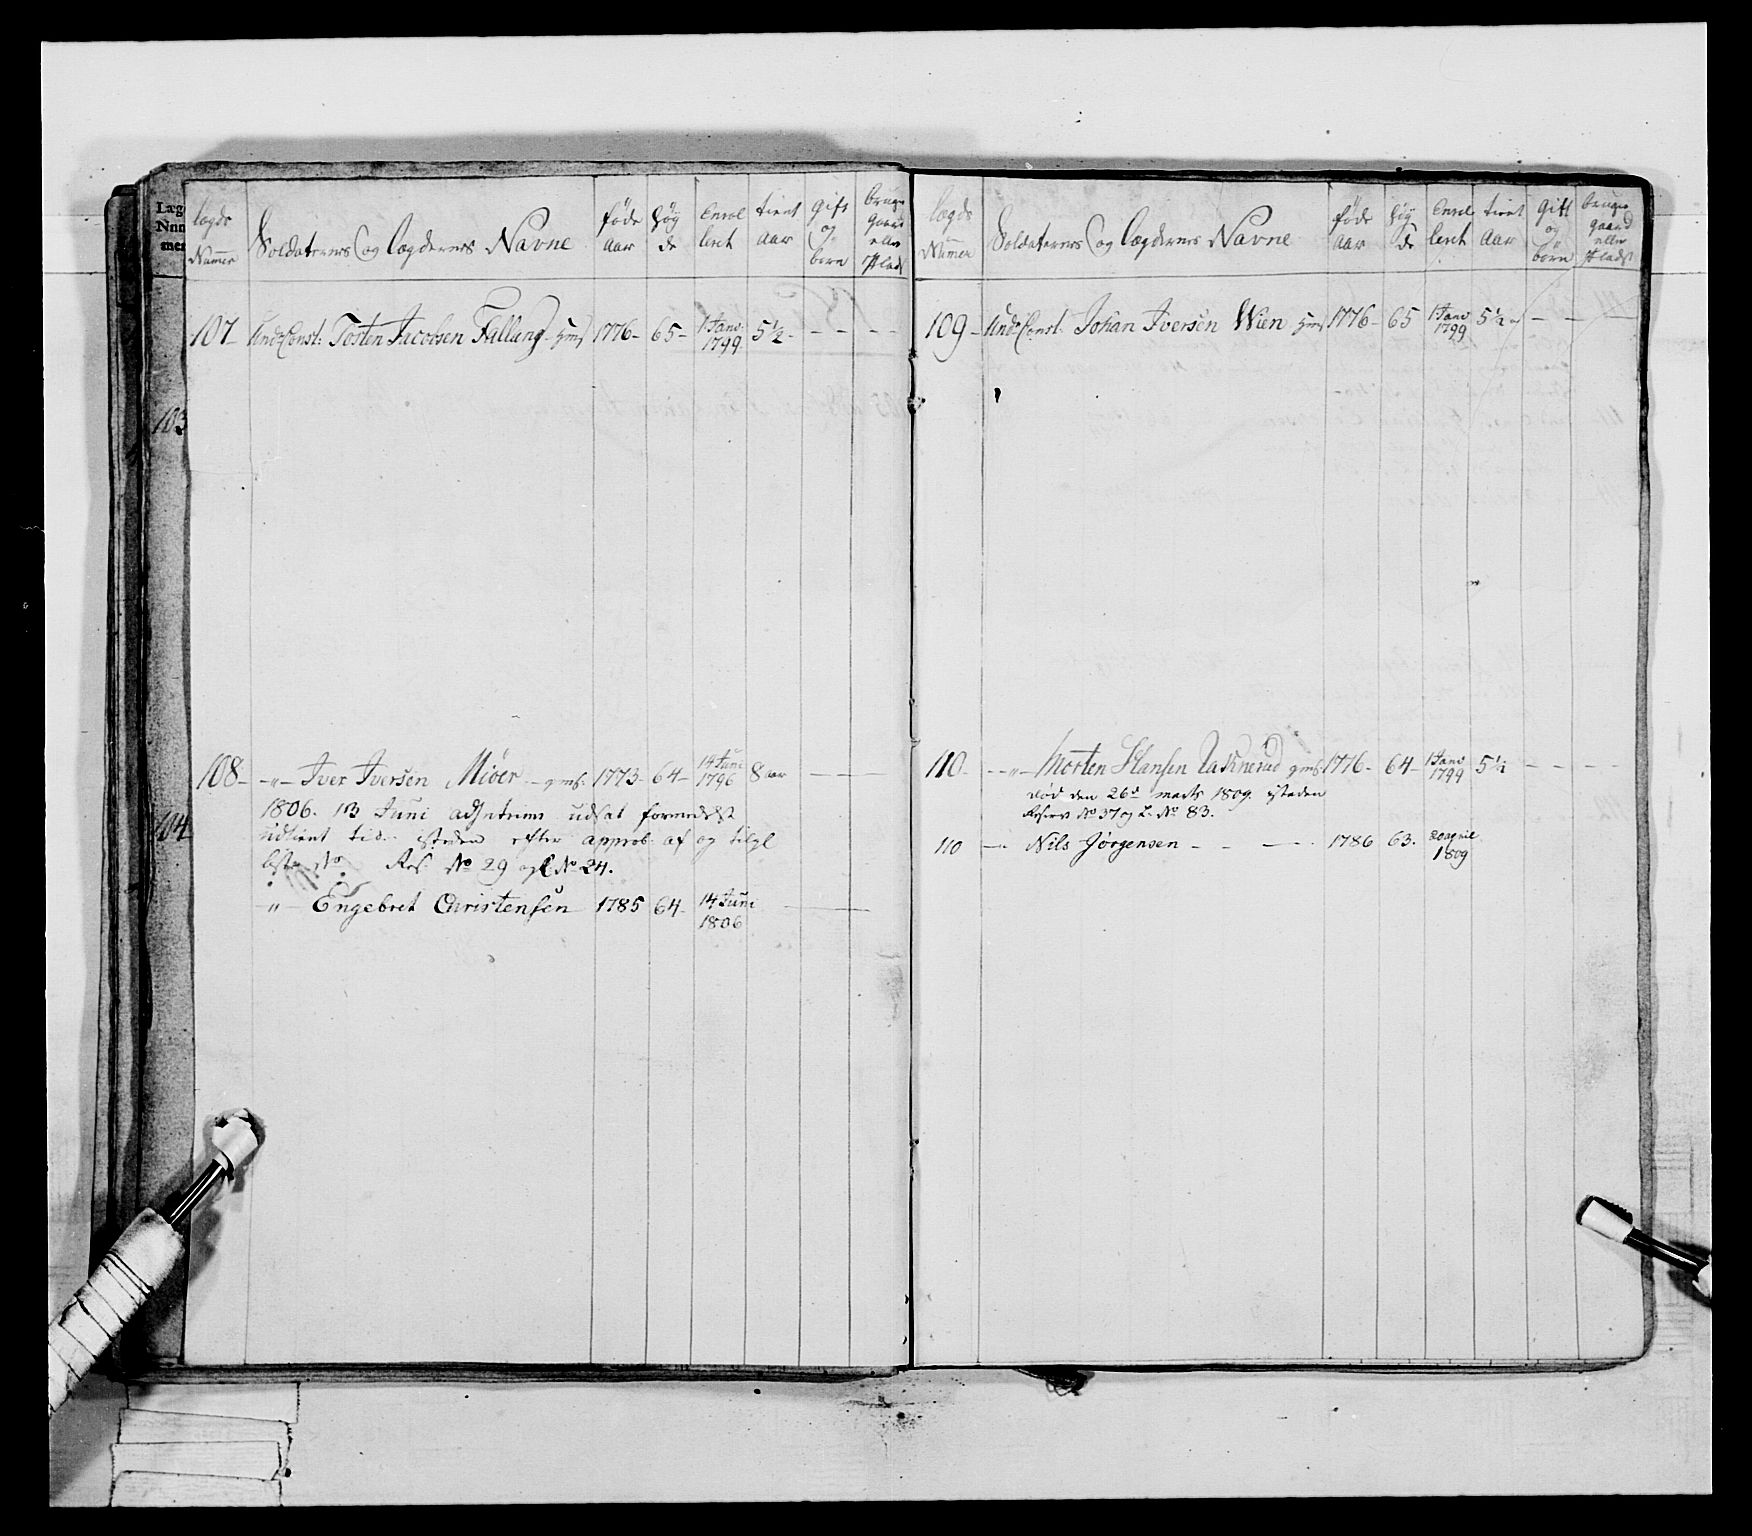 Læg
Num
mer
103
104
lægds Numer
Soldaternes og lægdernes Navne
føde aar
høy de
Enrol leret
tient aar
gift og børn
bruger gaard eller Plads
107 Und: Const: Tosten Jacobsen Fallang 1776 65 1 Janv: 1799 5½
108 Iver Iversen Miøer gms: 1773 64 14 Juni 1796 8 aar
1806. 13 Juni udsat formedelst
udtient tid. isteden efter approb. af og tilgl
Res: No 29 og L No 24.
Engebret Christensen 1785 64 14 Juni 1806
lægds Numer
Soldaternes og lægdernes Navne
føde aar
høy de
Enrol leret
tient aar
gift og børn
bruger gaard eller Plads
109 Und: Const: Johan Iversen Wien 1776 65 1 Janv 1799 5½
110 Morten Hansen gms: 1776 64 1 Janv 1799 5½
død den 26d marts 1809 isteden
Reserv No 37 og L: No 83.
110 Nils Jørgensen 1786 63. 20 april 1809